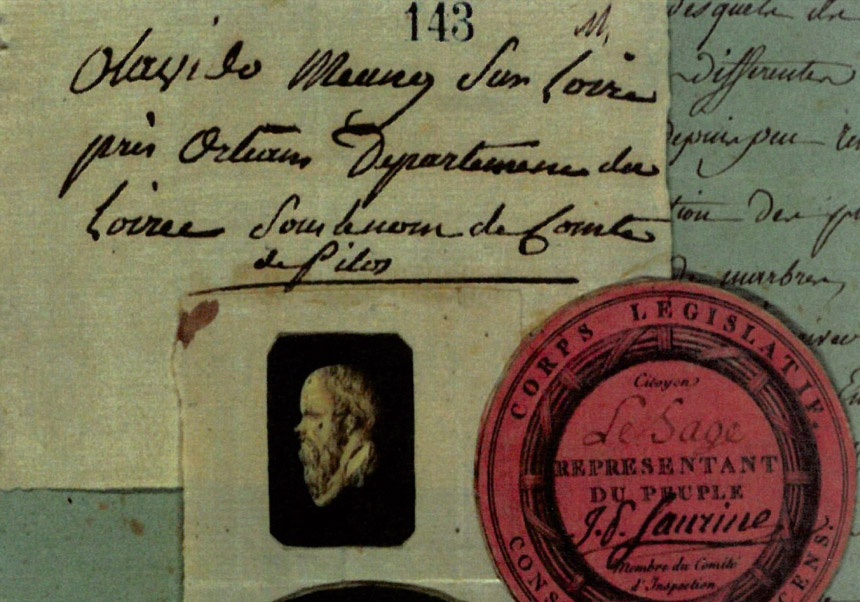 143
M,
Olavido Meung Sur Loire
près Orléans Departement du
Loiret Sous le nom de Comte
de Pilos
desquels
differentes
depuis peu
tion des
de marbres,
avec
CORPS LEGISLATIF.
Citoyen
Le Sage
REPRESENTANT
DU PEUPLE
Membre du Comité
d'Inspection
CONS
CENS.